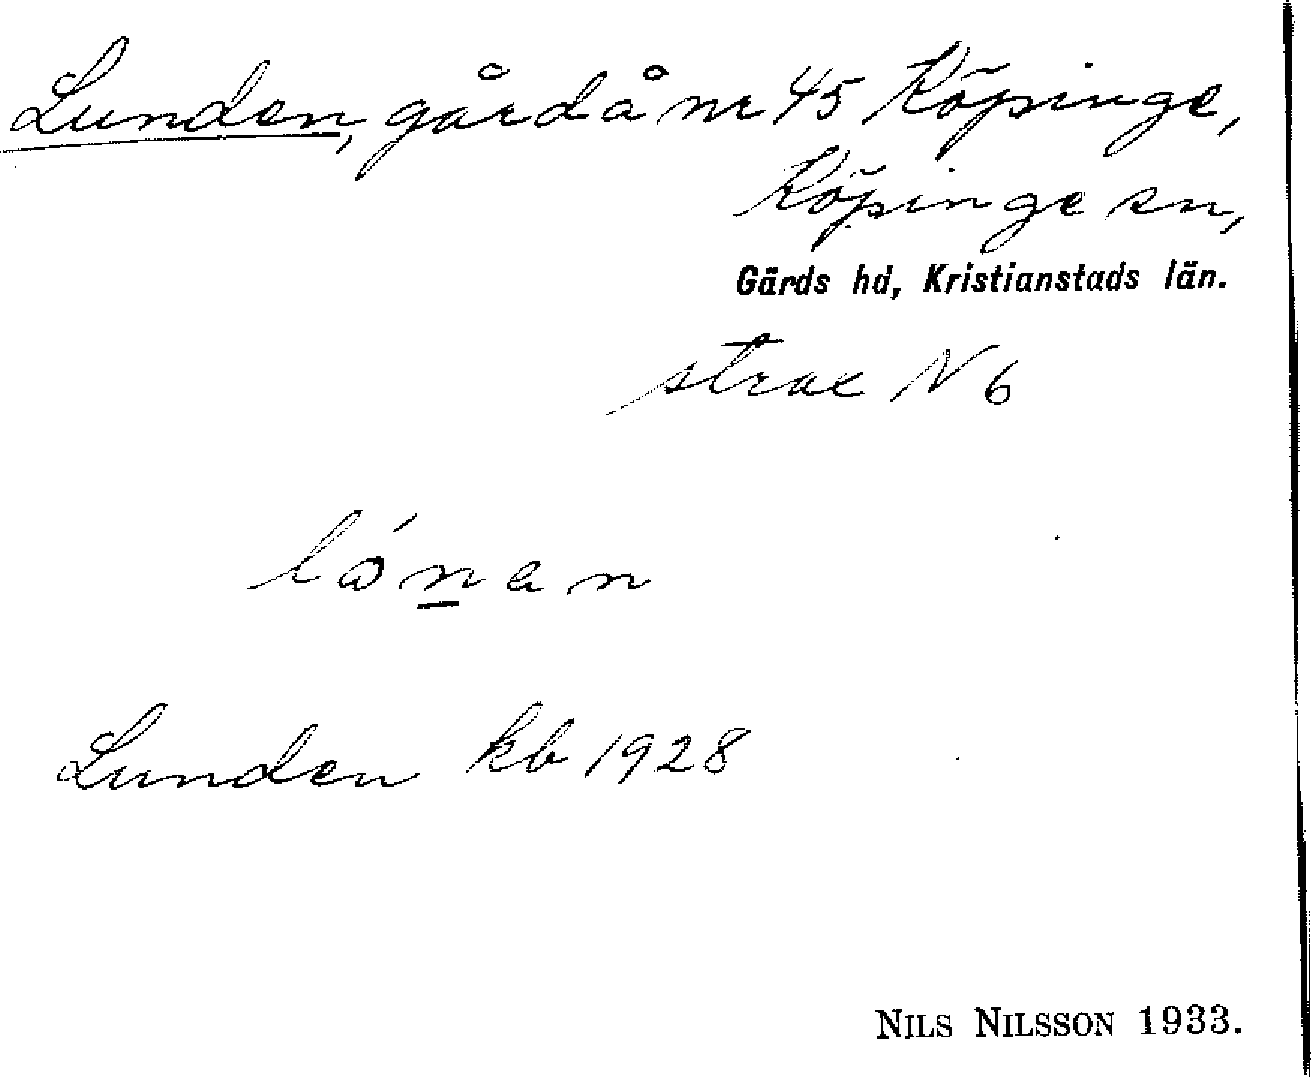 Lunden, gård å nr 45 Köpinge,
Köpinge sn,
Gärds hd, Kristianstads län.
strax N 6
Lunden kb 1928
NILS NILSSON 1933.